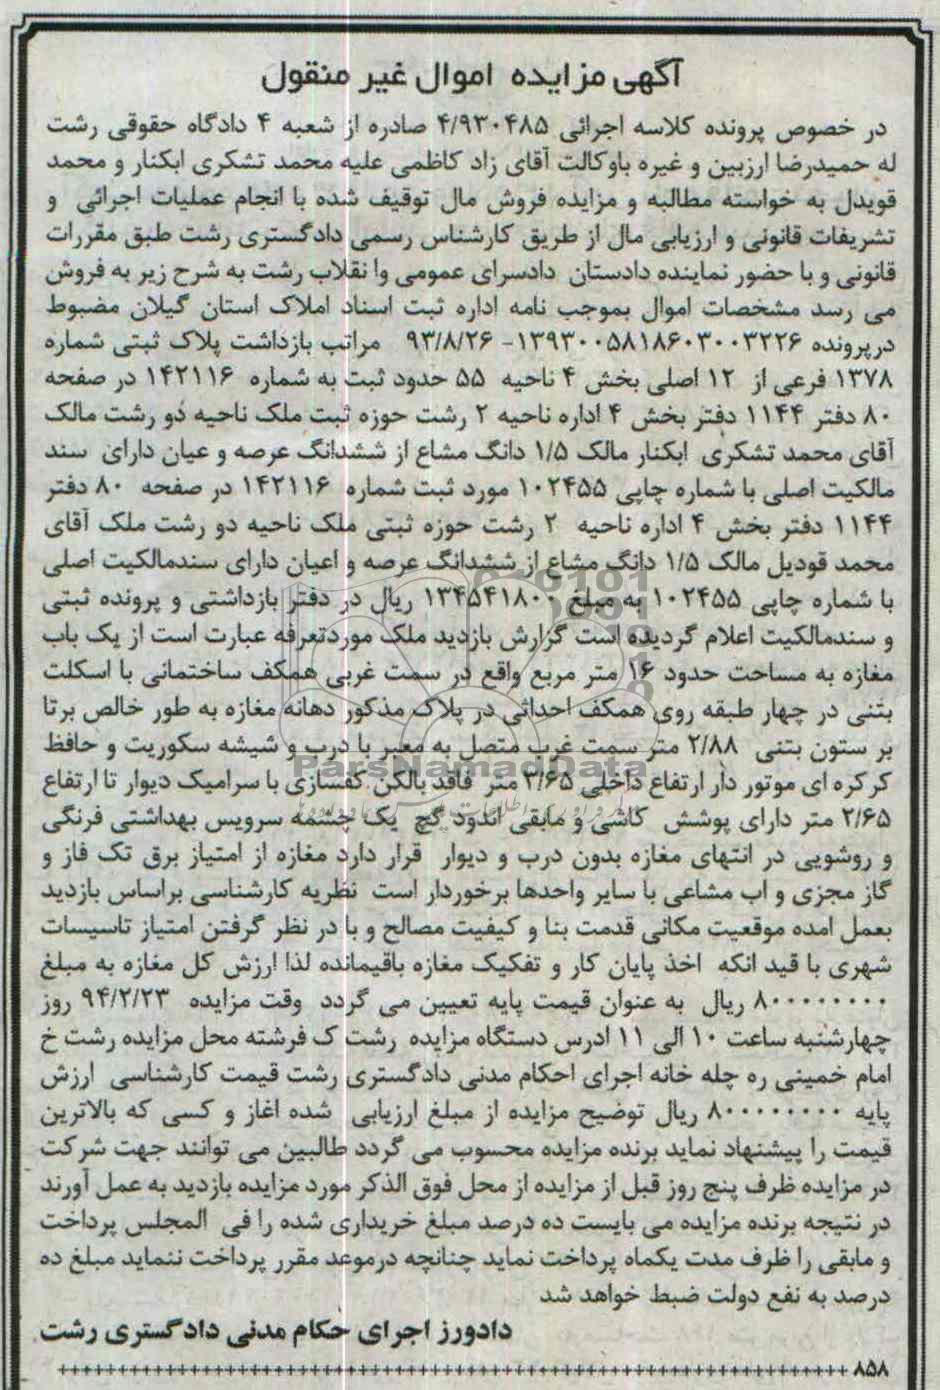 آگهی مزایده اموال غیر منقول
در خصوص پرونده کلاسه اجرائی ۴/۹۳۰۴۸۵ صادره از شعبه ۴ دادگاه حقوقی رشت
له حمیدرضا ارزبین و غیره باوکالت آقای زاد کاظمی علیه محمد تشکری ابکنار و محمد
قویدل به خواسته مطالبه و مزایده فروش مال توقیف شده با انجام عملیات اجرائی و
تشریفات قانونی و ارزیابی مال از طریق کارشناس رسمی دادگستری رشت طبق مقررات
قانونی و با حضور نماینده دادستان دادسرای عمومی وا نقلاب رشت به شرح زیر به فروش
می رسد مشخصات اموال بموجب نامه اداره ثبت اسناد املاک استان گیلان مضبوط
درپرونده ۱۳۹۳۰۰۵۸۱۸۶۰۳۰۰۳۲۲۶- ۹۳/۸/۲۶ مراتب بازداشت پلاک ثبتی شماره
۱۳۷۸ فرعی از ۱۲ اصلی بخش ۴ ناحیه ۵۵ حدود ثبت به شماره ۱۴۲۱۱۶ در صفحه
۸۰ دفتر ۱۱۴۴ دفتر بخش ۴ اداره ناحیه ۲ رشت حوزه ثبت ملک ناحیه دو رشت مالک
آقای محمد تشکری ابکنار مالک ۱/۵ دانگ مشاع از ششدانگ عرصه و عیان دارای سند
مالکیت اصلی با شماره چاپی ۱۰۲۴۵۵ مورد ثبت شماره ۱۴۲۱۱۶ در صفحه ۸۰ دفتر
۱۱۴۴ دفتر بخش ۴ اداره ناحیه ۲ رشت حوزه ثبتی ملک ناحیه دو رشت ملک آقای
محمد قودیل مالک ۱/۵ دانگ مشاع از ششدانگ عرصه و اعیان دارای سندمالکیت اصلی
با شماره چاپی ۱۰۲۴۵۵ به مبلغ ریال در دفتر بازداشتی و پرونده ثبتی
و سندمالکیت اعلام گردیده است گزارش بازدید ملک موردتعرفه عبارت است از یک باب
مغازه به مساحت حدود ۱۶ متر مربع واقع در سمت غربی همکف ساختمانی با اسکلت
بتنی در چهار طبقه روی همکف احداثی در پلاک مذکور دهانه مغازه به طور خالص برتا
بر ستون بتنی ۲/۸۸ متر سمت غرب متصل به معبر با درب و شیشه سکوریت و حافظ
کرکره ای موتور دار ارتفاع داخلی ۳/۶۵ متر فاقد بالکن کفسازی با سرامیک دیوار تا ارتفاع
۲/۶۵ متر دارای پوشش کاشی و مابقی اندود گچ یک چشمه سرویس بهداشتی فرنگی
و روشویی در انتهای مغازه بدون درب و دیوار قرار دارد مغازه از امتیاز برق تک فاز و
گاز مجزی و اب مشاعی با سایر واحدها برخوردار است نظریه کارشناسی براساس بازدید
بعمل امده موقعیت مکانی قدمت بنا و کیفیت مصالح و با در نظر گرفتن امتیاز تاسیسات
شهری با قید انکه اخذ پایان کار و تفکیک مغازه باقیمانده لذا ارزش کل مغازه به مبلغ
۸۰۰۰۰۰۰۰۰ ریال به عنوان قیمت پایه تعیین می گردد وقت مزایده ۹۴/۲/۲۳ روز
چهارشنبه ساعت ۱۰ الی ۱۱ ادرس دستگاه مزایده رشت ک فرشته محل مزایده رشت خ
امام خمینی ره چله خانه اجرای احکام مدنی دادگستری رشت قیمت کارشناسی ارزش
پایه ۸۰۰۰۰۰۰۰۰ ریال توضیح مزایده از مبلغ ارزیابی شده اغاز و کسی که بالاترین
قیمت را پیشنهاد نماید برنده مزایده محسوب می گردد طالبین می توانند جهت شرکت
در مزایده ظرف پنج روز قبل از مزایده از محل فوق الذکر مورد مزایده بازدید به عمل آورند
در نتیجه برنده مزایده می بایست ده درصد مبلغ خریداری شده را فی المجلس پرداخت
و مابقی را ظرف مدت یکماه پرداخت نماید چنانچه درموعد مقرر پرداخت ننماید مبلغ ده
درصد به نفع دولت ضبط خواهد شد
دادورز اجرای حکام مدنی دادگستری رشت
۸۵۸
ParsNamadData